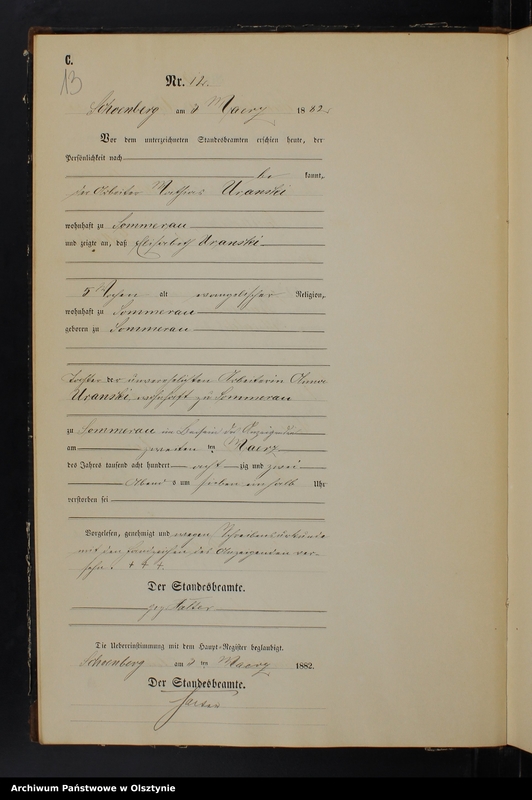 C.
13
Nr. 12.
Schoenberg am 3 Maerz 1882
Vor dem unterzeichneten Standesbeamten erschien heute, der
Persönlichkeit nach
be kannt,
der Arbeiter Uranski
wohnhaft zu Sommerau
und zeigte an, daß Elisabeth Uranski
5 Wochen alt evangelischer Religion,
wohnhaft zu Sommerau
geboren zu Sommerau
Tochter der unverehelichten Arbeiterin Anna
Uranski, wohnhaft zu Sommerau
zu Sommerau im Beisein des Anzeigenden
am zweiten ten Maerz
des Jahres tausend acht hundert acht zig und zwei
Abend s um sieben einhalb Uhr
verstorben sei
Vorgelesen, genehmigt und wegen Schreibensunkunde
mit den Handzeichen des Anzeigenden ver-
sehn. + + +.
Der Standesbeamte.
gez.
Die Uebereinstimmung mit dem Haupt-Register beglaubigt.
Schoenberg am 3 ten Maerz 1882.
Der Standesbeamte.
Archiwum Państwowe w Olsztynie